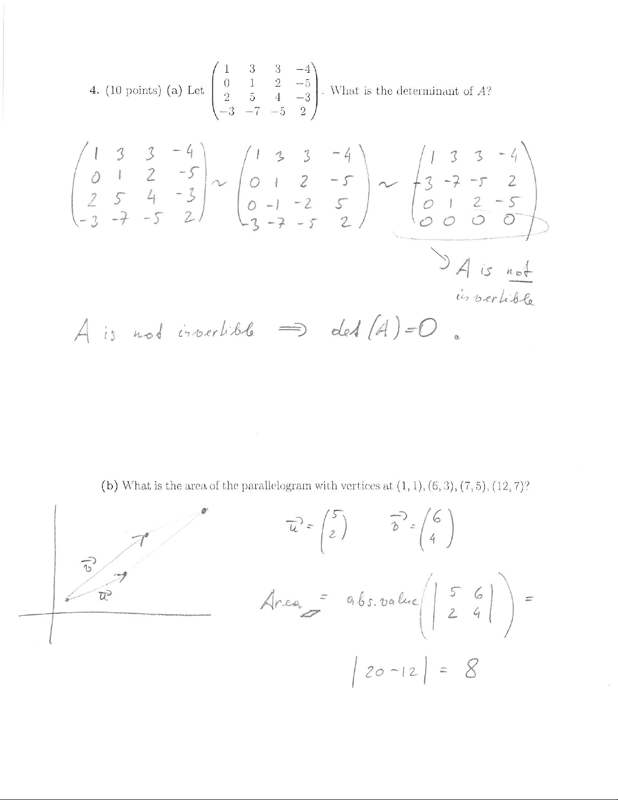 4. (10 points) (a) Let ( 1 3 3 −4 ; 0 1 2 −5 ; 2 5 4 −3 ; −3 −7 −5 2 ). What is the determinant of A?
( 1 3 3 -4 ; 0 1 2 -5 ; 2 5 4 -3 ; -3 -7 -5 2 ) ~ ( 1 3 3 -4 ; 0 1 2 -5 ; 0 -1 -2 5 ; -3 -7 -5 2 ) ~ ( 1 3 3 -4 ; -3 -7 -5 2 ; 0 1 2 -5 ; 0 0 0 0 )
↘ A is not
invertible
A is not invertible ⟹ det(A)=0.
(b) What is the area of the parallelogram with vertices at (1, 1), (6, 3), (7, 5), (12, 7)?
u⃗ = ( 5 ; 2 ) v⃗ = ( 6 ; 4 )
v⃗
u⃗
Area▱ = abs.value ( | 5 6 ; 2 4 | ) =
|20-12| = 8